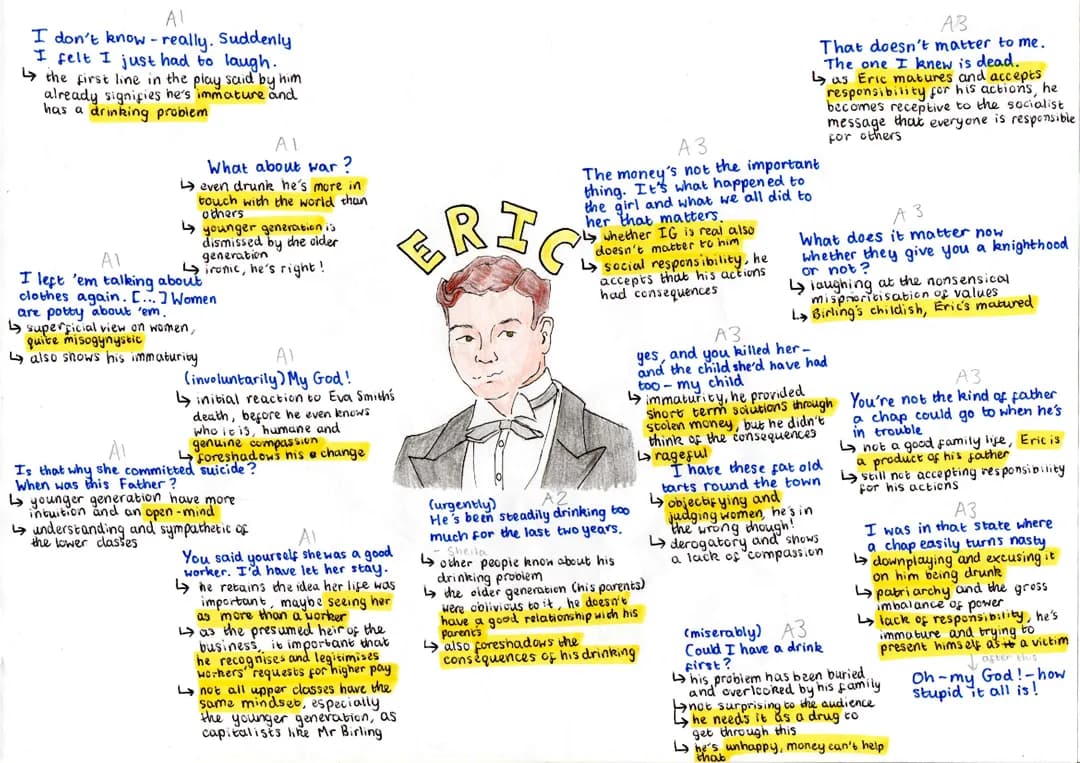 A1
I don't know - really. Suddenly
I felt I just had to laugh.
↳ the first line in the play said by him
already signifies he's immature and
has a drinking problem
A1
What about war?
↳ even drunk he's more in
touch with the world than
others
↳ younger generation is
dismissed by the older
generation
↳ ironic, he's right!
A1
I left 'em talking about
clothes again. [...] Women
are potty about 'em.
↳ superficial view on women,
quite misogynystic
↳ also shows his immaturity
A1
(involuntarily) My God!
↳ initial reaction to Eva Smith's
death, before he even knows
who it is, humane and
genuine compassion
↳ foreshadows his change
A1
Is that why she committed suicide?
When was this Father?
↳ younger generation have more
intuition and an open-mind
↳ understanding and sympathetic of
the lower classes
A1
You said yourself she was a good
worker. I'd have let her stay.
↳ he retains the idea her life was
important, maybe seeing her
as more than a worker
↳ as the presumed heir of the
business, it important that
he recognises and legitimises
workers' requests for higher pay
↳ not all upper classes have the
same mindset, especially
the younger generation, as
capitalists like Mr Birling
ERIC
A2
(urgently)
He's been steadily drinking too
much for the last two years.
- Sheila
↳ other people know about his
drinking problem
↳ the older generation (his parents)
were oblivious to it, he doesn't
have a good relationship with his
parents
↳ also foreshadows the
consequences of his drinking
A3
The money's not the important
thing. It's what happened to
the girl and what we all did to
her that matters.
↳ whether IG is real also
doesn't matter to him
↳ social responsibility, he
accepts that his actions
had consequences
A3
yes, and you killed her -
and the child she'd have had
too - my child
↳ immaturity, he provided
short term solutions through
stolen money, but he didn't
think of the consequences
↳ rageful
I hate these fat old
tarts round the town
↳ objectifying and
judging women, he's in
the wrong though!
↳ derogatory and shows
a lack of compassion
A3
(miserably)
Could I have a drink
first?
↳ his problem has been buried
and overlooked by his family
↳ not surprising to the audience
↳ he needs it as a drug to
get through this
↳ he's unhappy, money can't help
that
A3
That doesn't matter to me.
The one I knew is dead.
↳ as Eric matures and accepts
responsibility for his actions, he
becomes receptive to the socialist
message that everyone is responsible
for others
A3
What does it matter now
whether they give you a knighthood
or not?
↳ laughing at the nonsensical
misprioritisation of values
↳ Birling's childish, Eric's matured
A3
You're not the kind of father
a chap could go to when he's
in trouble
↳ not a good family life, Eric is
a product of his father
↳ still not accepting responsibility
for his actions
A3
I was in that state where
a chap easily turns nasty
↳ downplaying and excusing it
on him being drunk
↳ patriarchy and the gross
imbalance of power
↳ lack of responsibility, he's
immature and trying to
present himself as a victim
↓ after this
Oh - my God! - how
stupid it all is!